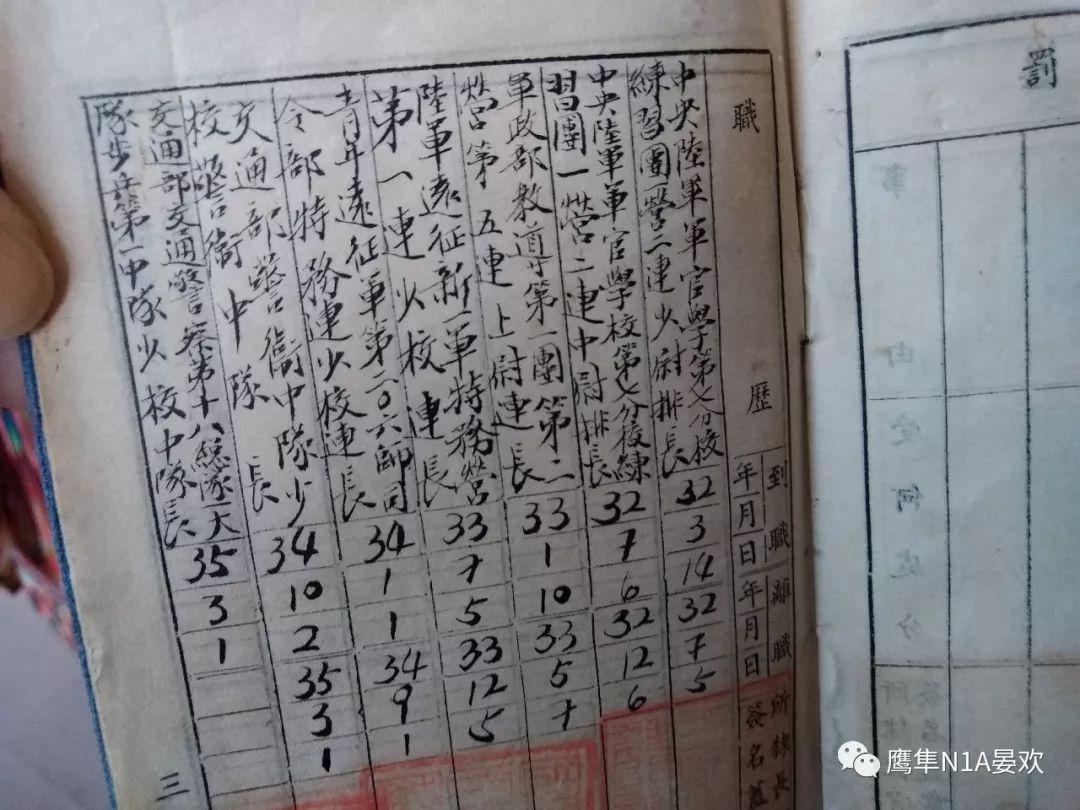 職歷
到職
年月日
離職
年月日
所隸長
簽名蓋
中央陸軍軍官學第七分校
練習團一營二連少尉排長
32
3
14
32
7
5
中央陸軍軍官學校第七分校練
習團一營二連中尉排長
32
7
6
32
12
6
軍政部教導第一團第二
營第五連上尉連長
33
1
10
33
5
7
陸軍遠征新一軍特務營
第一連少校連長
33
7
5
33
12
5
青年遠征軍第二〇六師司
令部特務連少校連長
34
1
1
34
9
1
交通部警衛中隊少
校警衛中隊長
34
10
2
35
3
1
交通部交通警察第十八總隊一大
隊步兵第一中隊少校中隊長
35
3
1
三
罰
事由
受何處分
鹰隼N1A晏欢